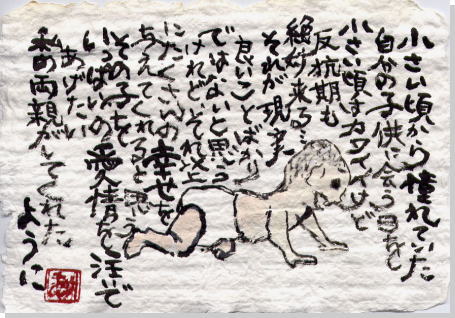 小さい頃から憧れていた
自分の子供に会う日をと
小さい頃はカワイイけど
反抗期も
絶妙来る…
それが現実
良いことばかり
ではないと思う
けれど、それ以上
にたくさんの幸せを
与えてくれると思う
その子を
いっぱいの愛情を注いで
あげたい
私の両親がしてくれた
ように